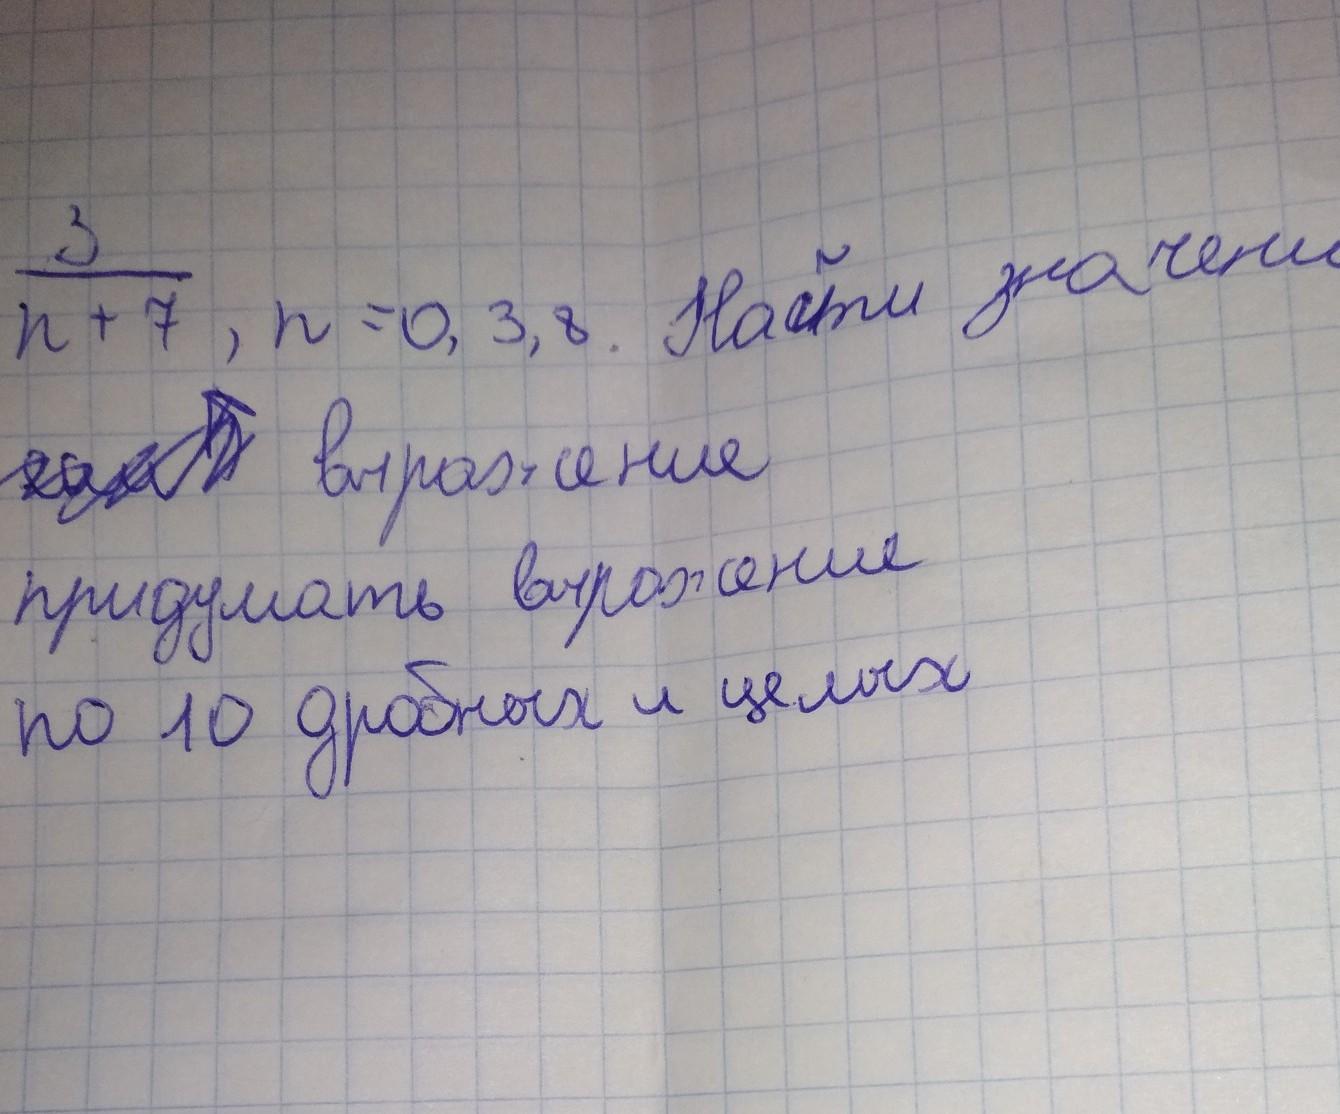 3
n + 7, n = 0, 3, 8. Найти значени
выражение
придумать выражение
по 10 дробных и целых